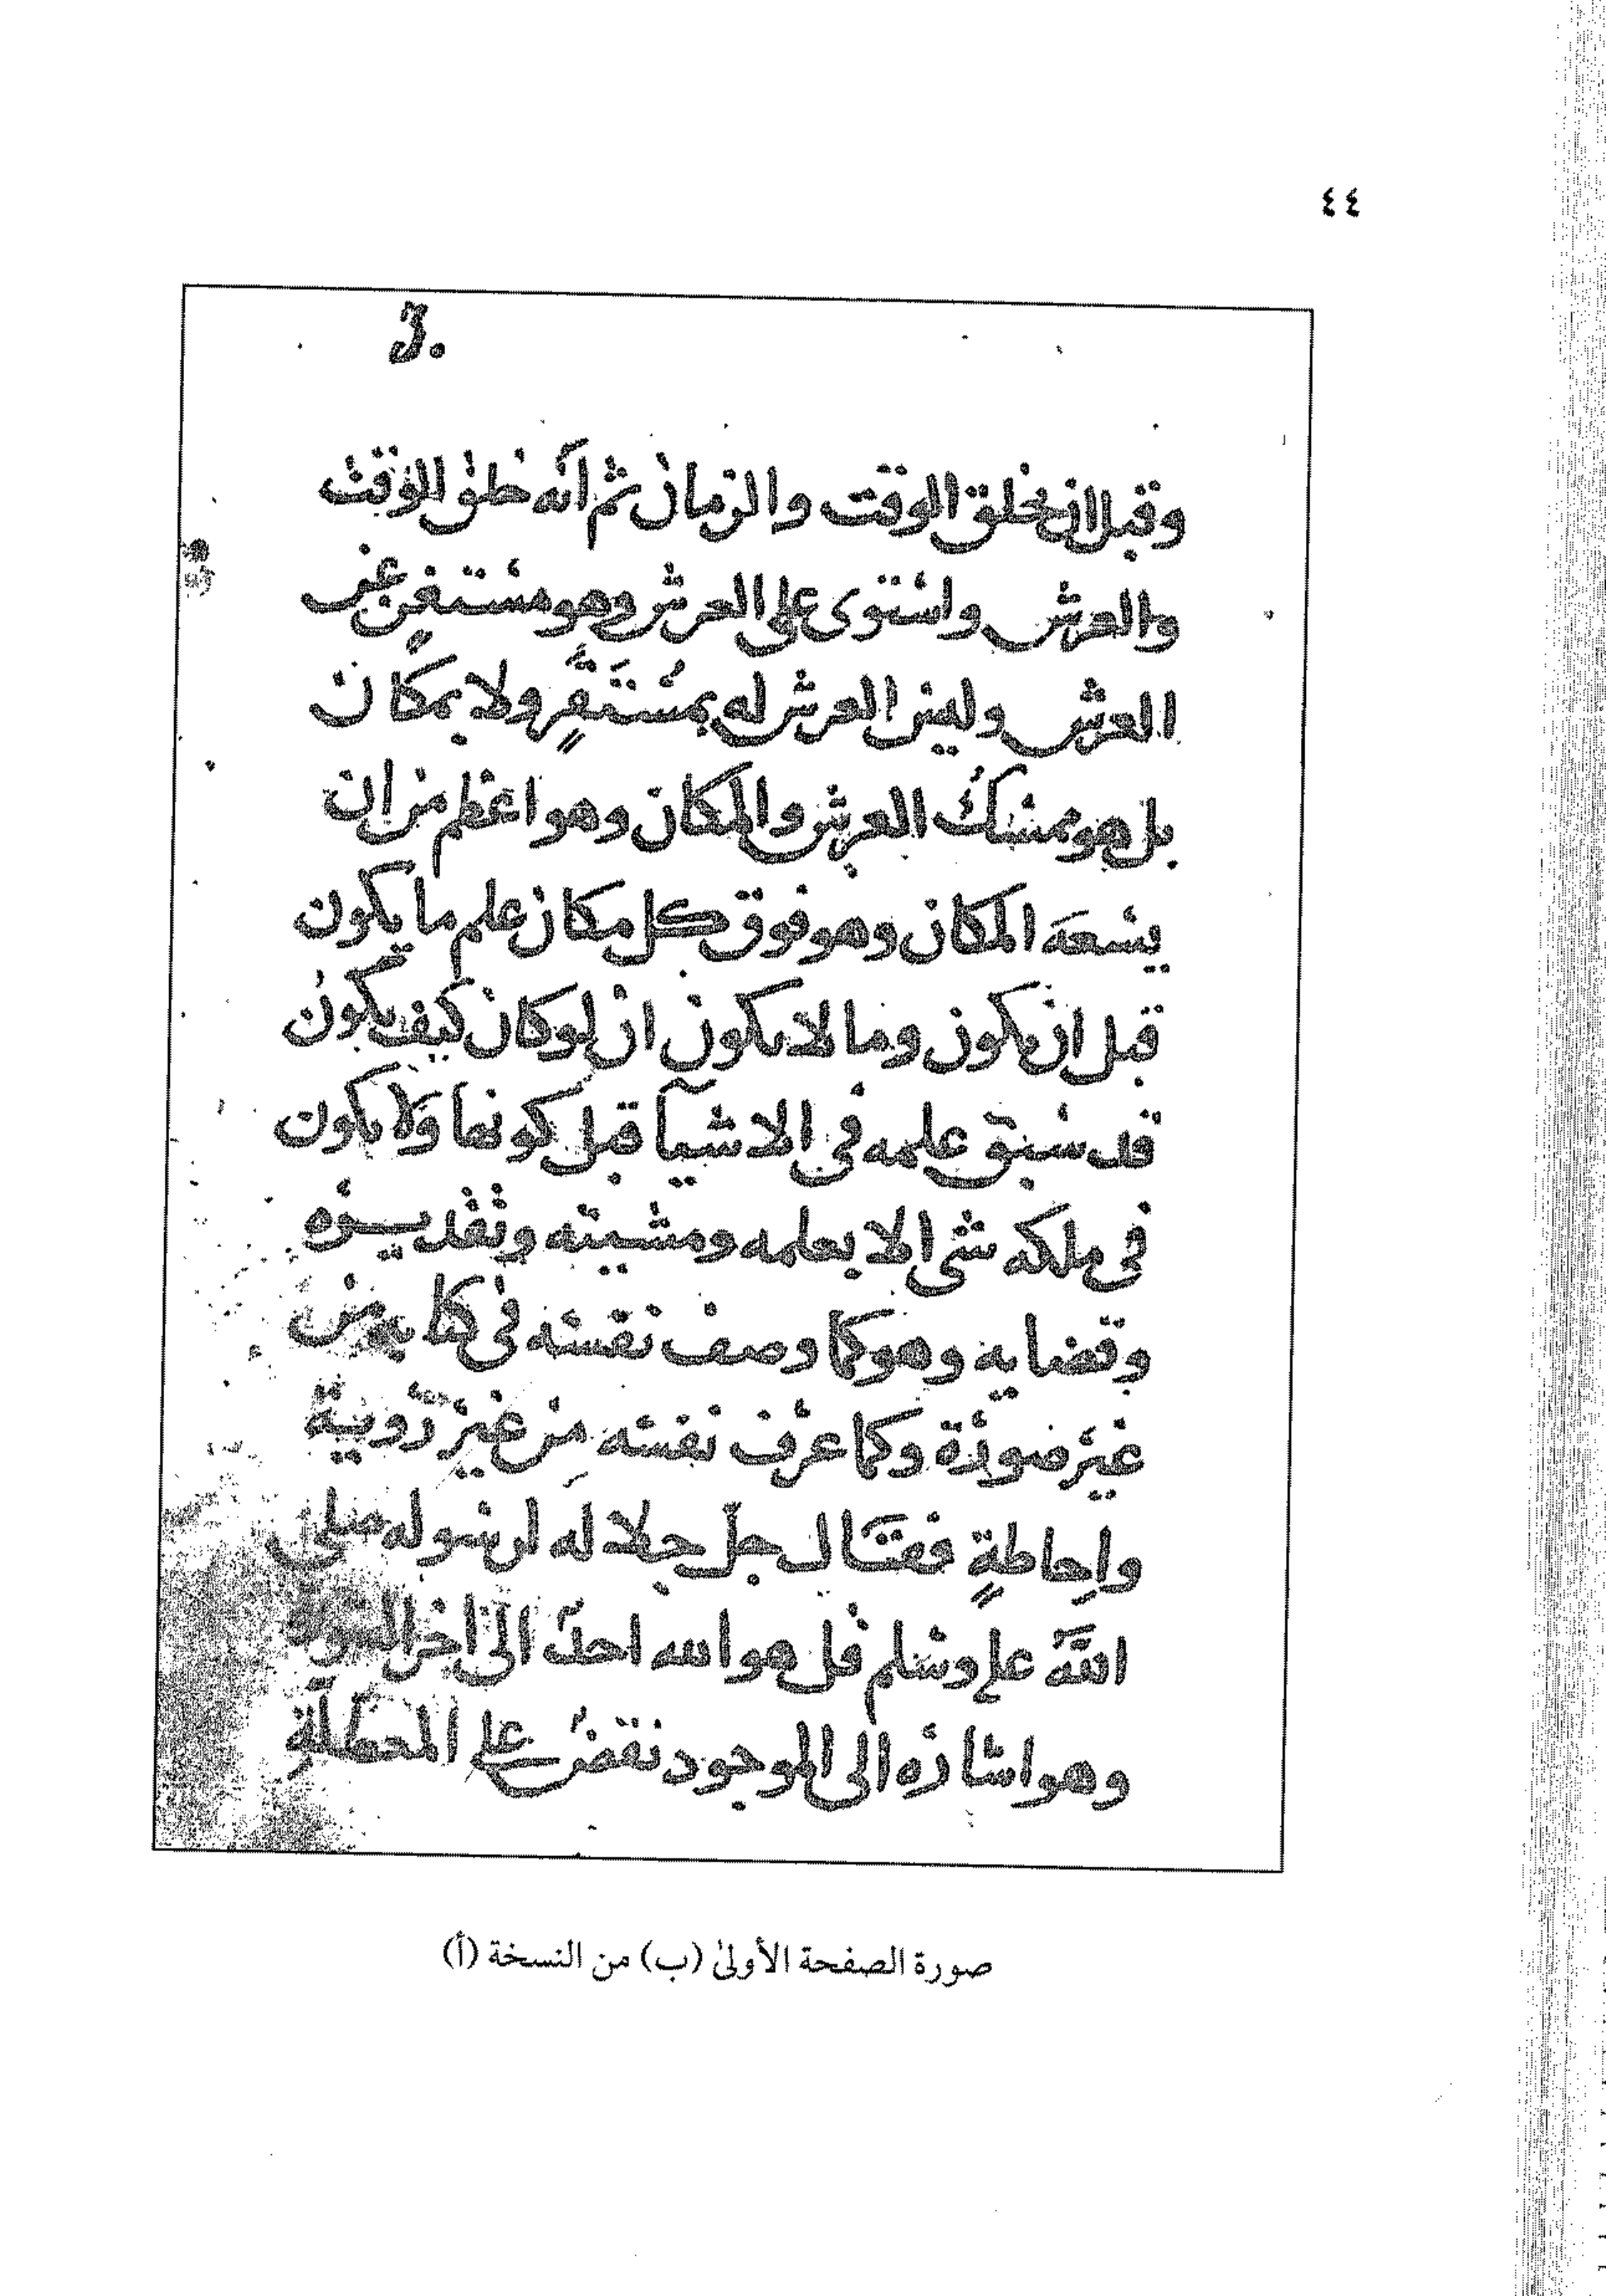 ٤٤
وقبل ان يخلق الوقت والزمان ثم أنه خلق الوقت
والعرش واستوى على العرش وهو مستغن عن
العرش وليس العرش له بمُستَقَّرٍ ولا بمكان
بل هو ممسكُ العرش والمكان وهو اعظم من ان
يسعَه المكان وهو فوق كل مكان علم ما يكون
قبل ان يكون وما لا يكون ان لو كان كيف يكون
قد سبق علمه في الاشيآ قبل كونها ولا يكون
في ملكه شى الا بعلمه ومشيته وتقديره
وقضايه وهو كما وصف نفسه في كتابه من
غير صورة وكما عرف نفسه مِن غير روية
واِحاطةٍ فقال جلّ جلاله لرسوله صلى
اللَّه علىه وسلم قل هو الله احدٌ الى اخر السورة
وهو اشاره الى الموجود نقضٌ على المعطلةِ
صورة الصفحة الأولىٰ (ب) من النسخة (أ)